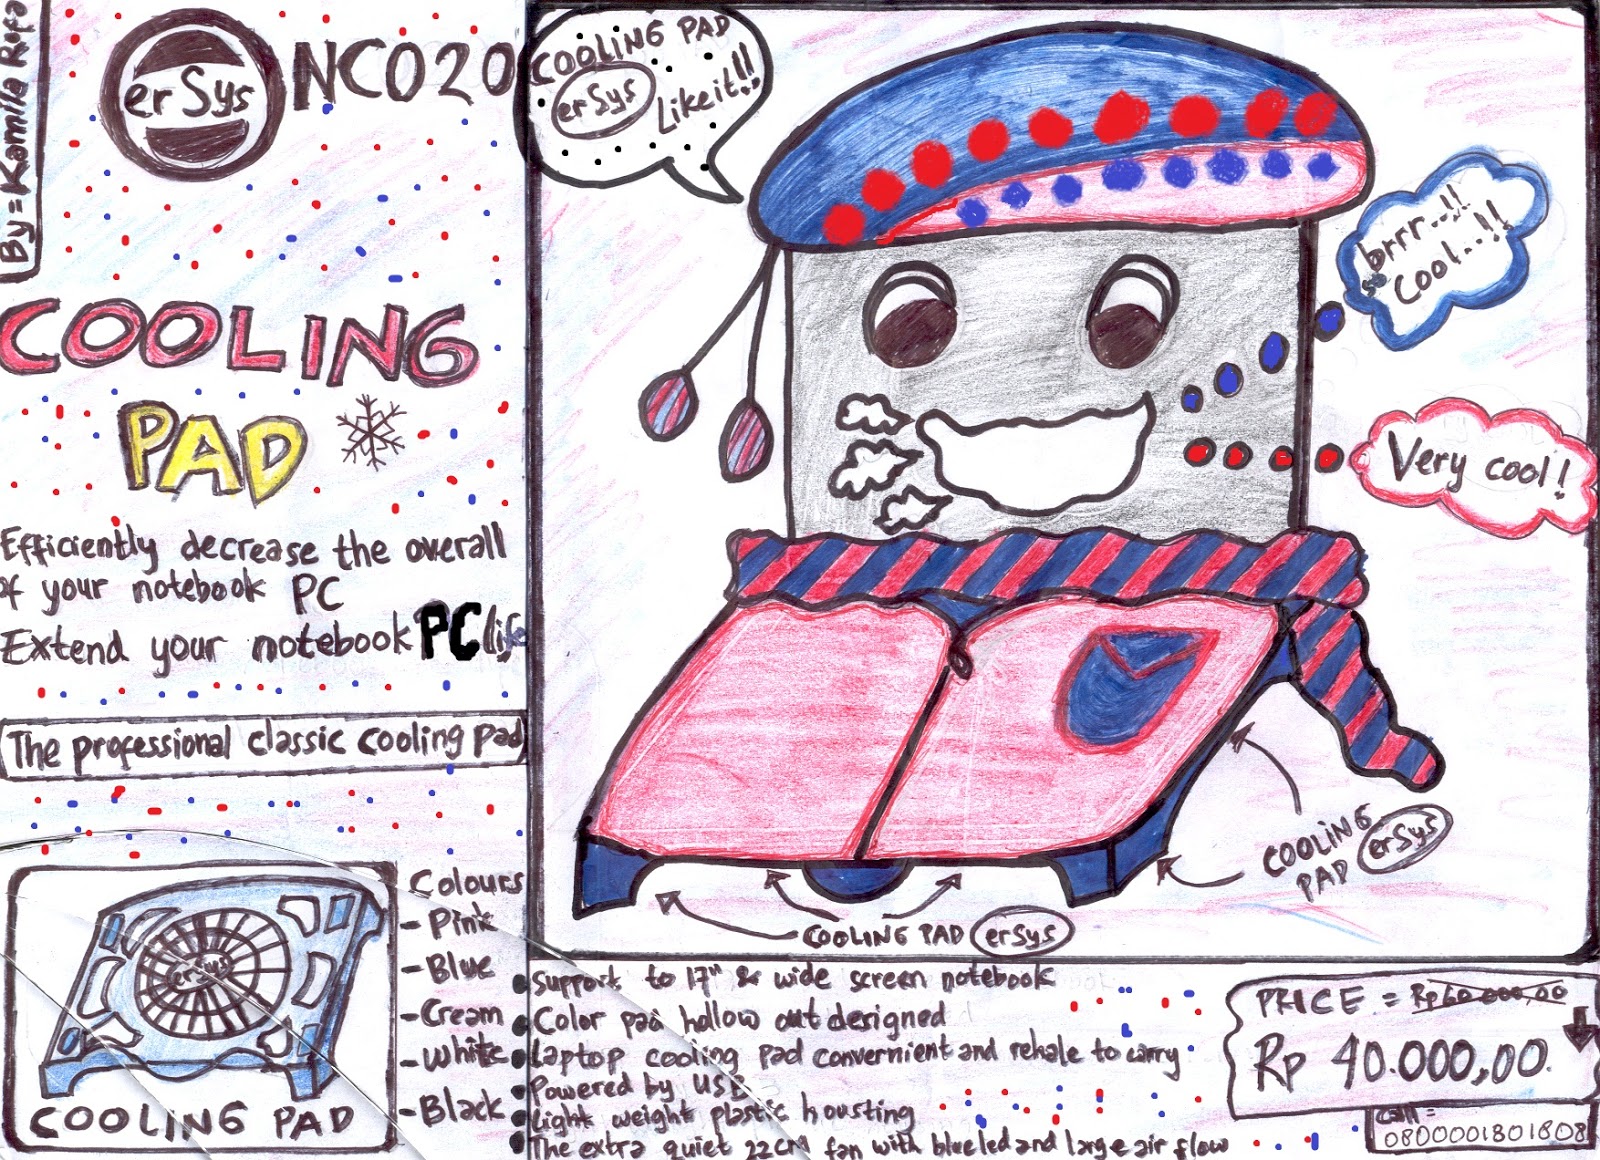 By = Kamila Rosa
erSys NC020
COOLING
PAD
Efficiently decrease the overall
of your notebook PC
Extend your notebook PC life
The professional classic cooling pad
erSys
COOLING PAD
Colours
- Pink
- Blue
- Cream
- White
- Black
COOLING PAD
erSys
Like it!!
brrr...!!
so
Cool...!!
Very cool!
COOLING
PAD erSys
COOLING PAD erSys
Support to 17" & wide screen notebook
Color pad hollow out designed
Laptop cooling pad convernient and rehale to carry
Powered by USB
Light weight plastic housting
The extra quiet 22CM fan with blue led and large air flow
PRICE = Rp 60.000,00
Rp 40.000,00.
Call =
0800001801808